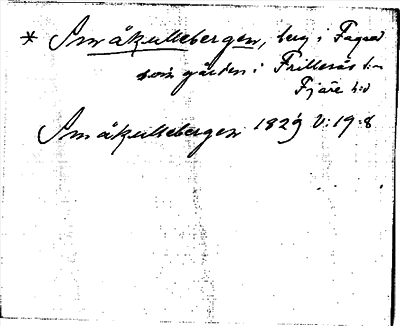 * Småkullebergen, berg i Fagered
som gården i Frillesås sn
Fjäre hd
Småkullebergen 1829 V:19:8